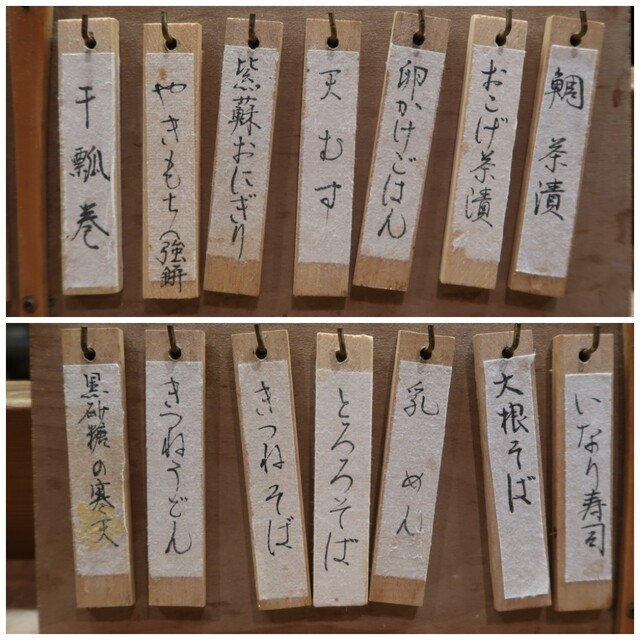 鯛茶漬
おこげ茶漬
卵かけごはん
天むす
紫蘇おにぎり
やきもちの強餅
干瓢巻
いなり寿司
大根そば
乳めん
とろろそば
きつねそば
きつねうどん
黒砂糖の寒天